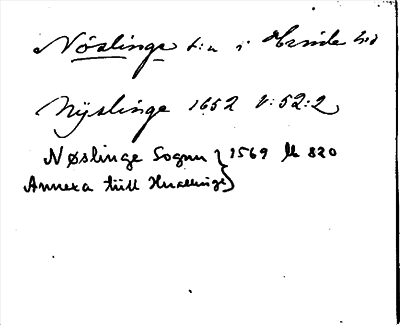 Nöslinge s:n i Himle hd
Nyslinge 1652 V:52:2
Nøslinge Sognn } 1569 Lb 820
Annexa till Huallinge }